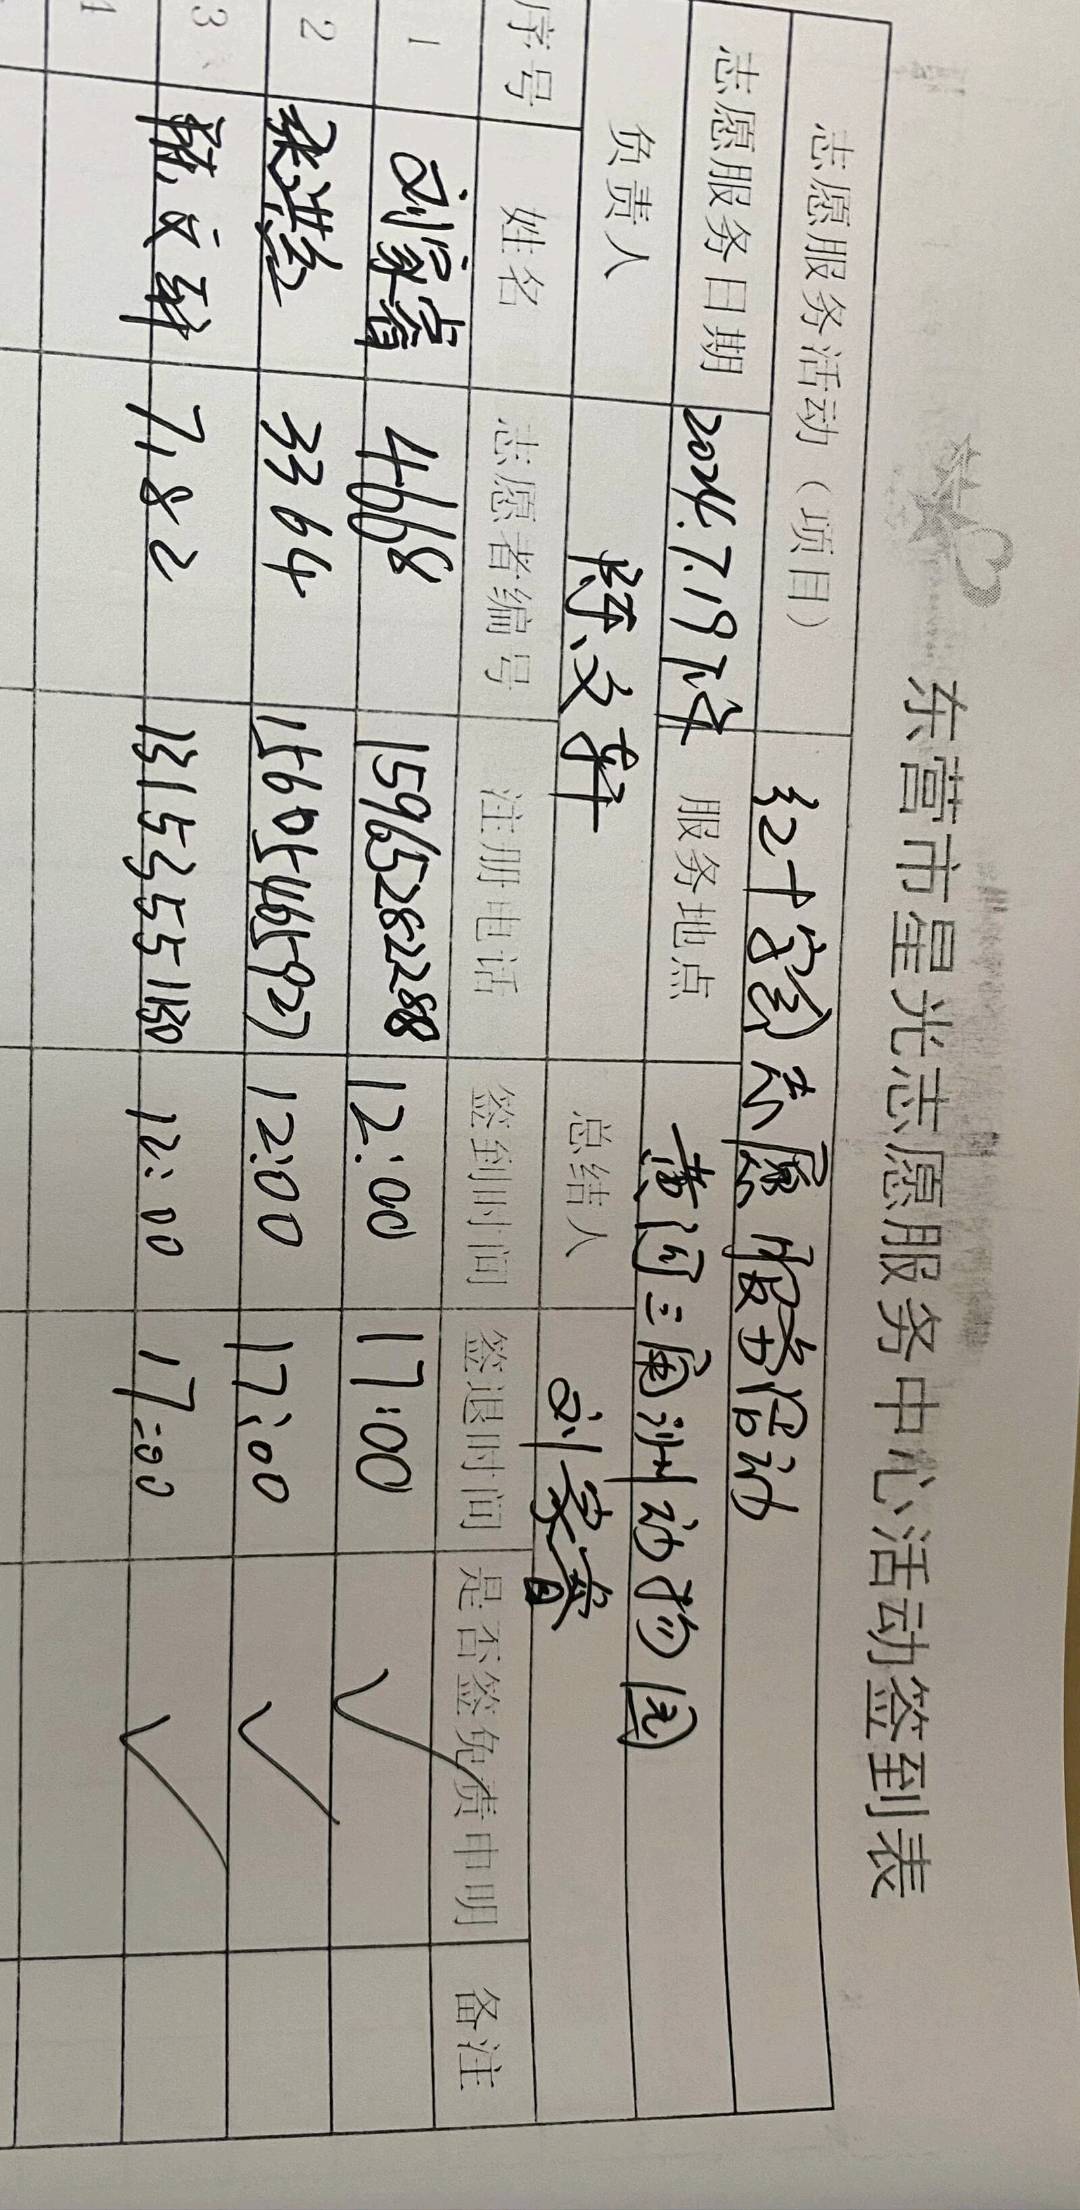 东营市星光志愿服务中心活动签到表
志愿服务活动（项目） 红十字会志愿服务活动
志愿服务日期 2024.7.19下午 服务地点 黄河三角洲动物园
负责人 陈文轩 总结人 刘家睿
序号 姓名 志愿者编号 注册电话 签到时间 签退时间 是否签免责申明 备注
1 刘家睿 4668 15965282288 12:00 17:00 ✓
2 3364 12:00 17:00 ✓
3 7182 12:00 17:00 ✓
4